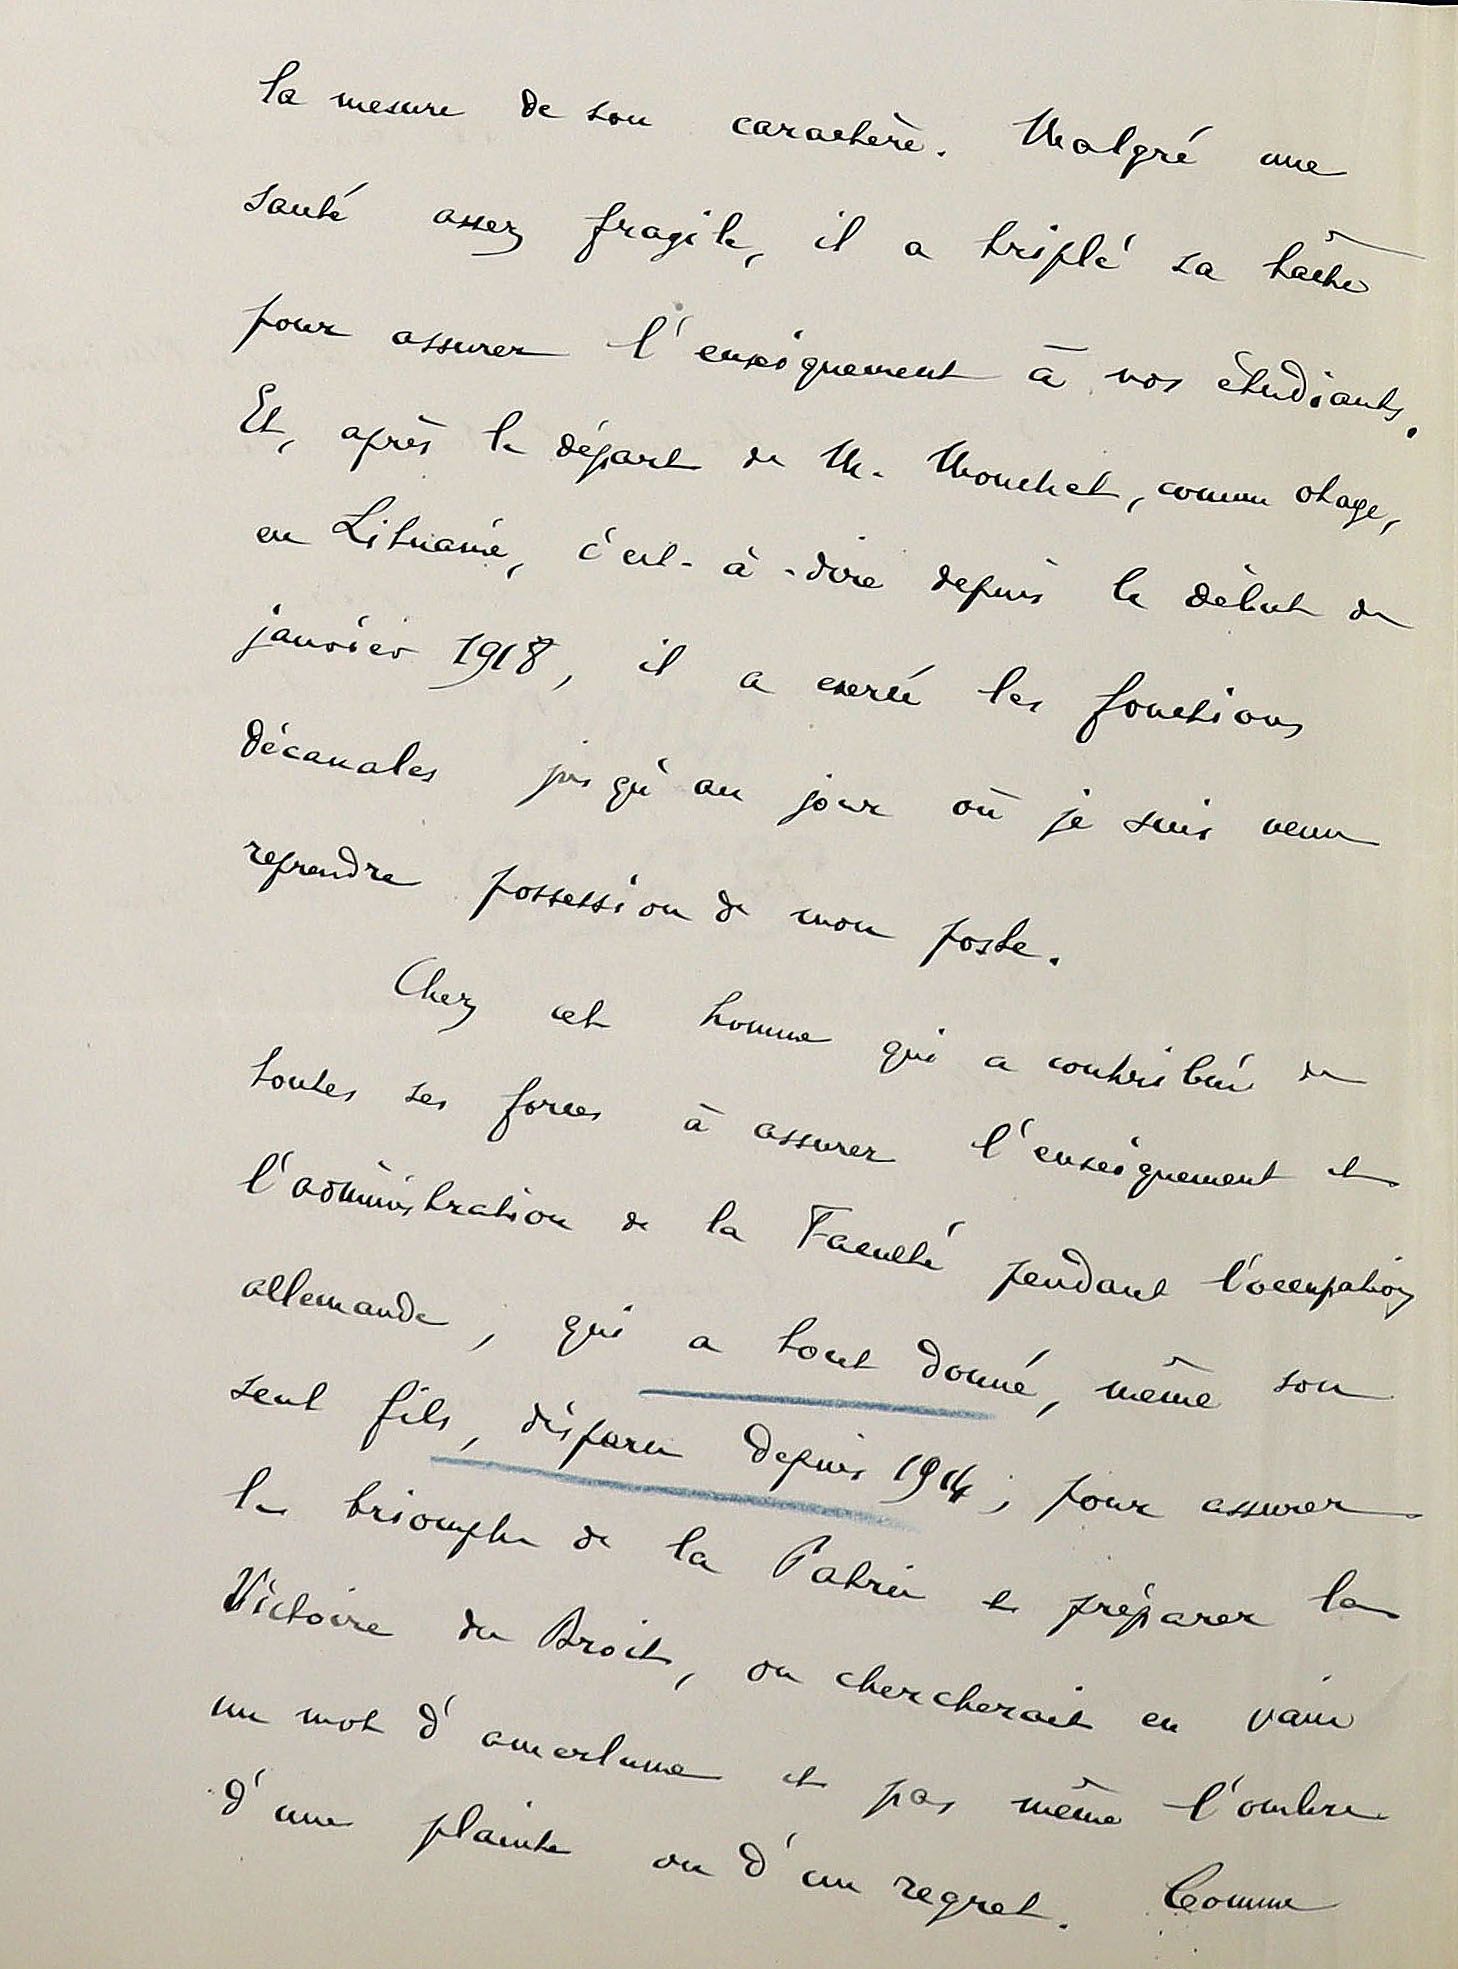 la mesure de son caractère. Malgré une
santé assez fragile, il a triplé sa tâche
pour assurer l'enseignement à nos étudiants.
Et, après le départ de M. Mouchet, comme otage,
en Lituanie, c'est-à-dire depuis le début de
janvier 1918, il a exercé les fonctions
décanales jusqu'au jour où je suis venu
reprendre possession de mon poste.
Chez cet homme qui a contribué de
toutes ses forces à assurer l'enseignement et
l'administration de la Faculté pendant l'occupation
allemande, qui a tout donné, même son
seul fils, disparu depuis 1914, pour assurer
le triomphe de la Patrie et préparer la
Victoire du Droit, on chercherait en vain
un mot d'amertume et pas même l'ombre
d'une plainte ou d'un regret. Comme